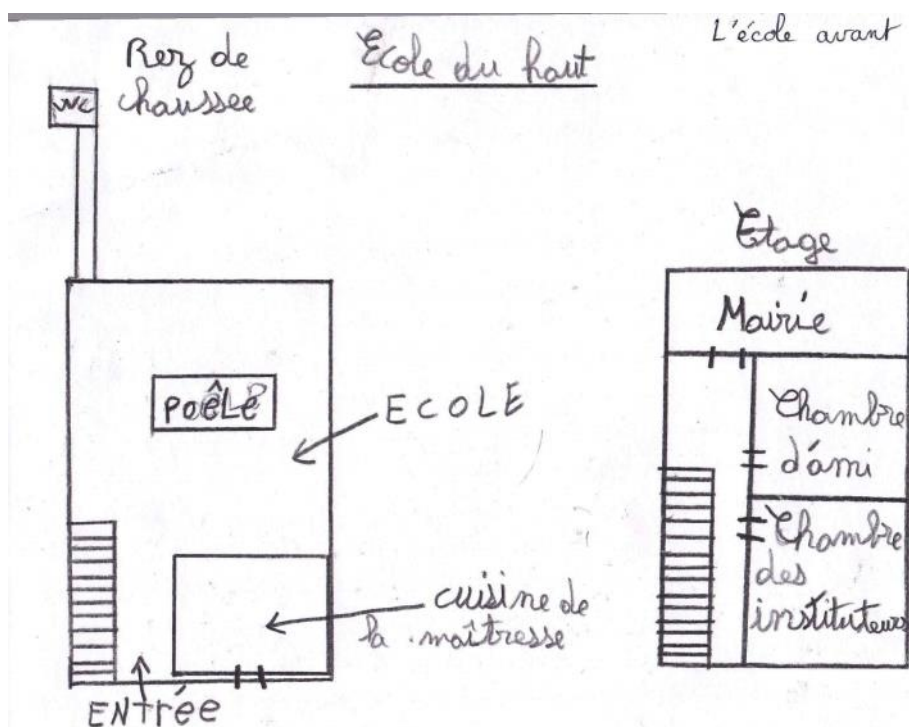 L'école avant
Ecole du haut
Rez de
chaussee
WC
POÊLE
ECOLE
cuisine de
la maîtresse
ENTRÉE
Etage
Mairie
Chambre
d'ami
Chambre
des
instituteurs